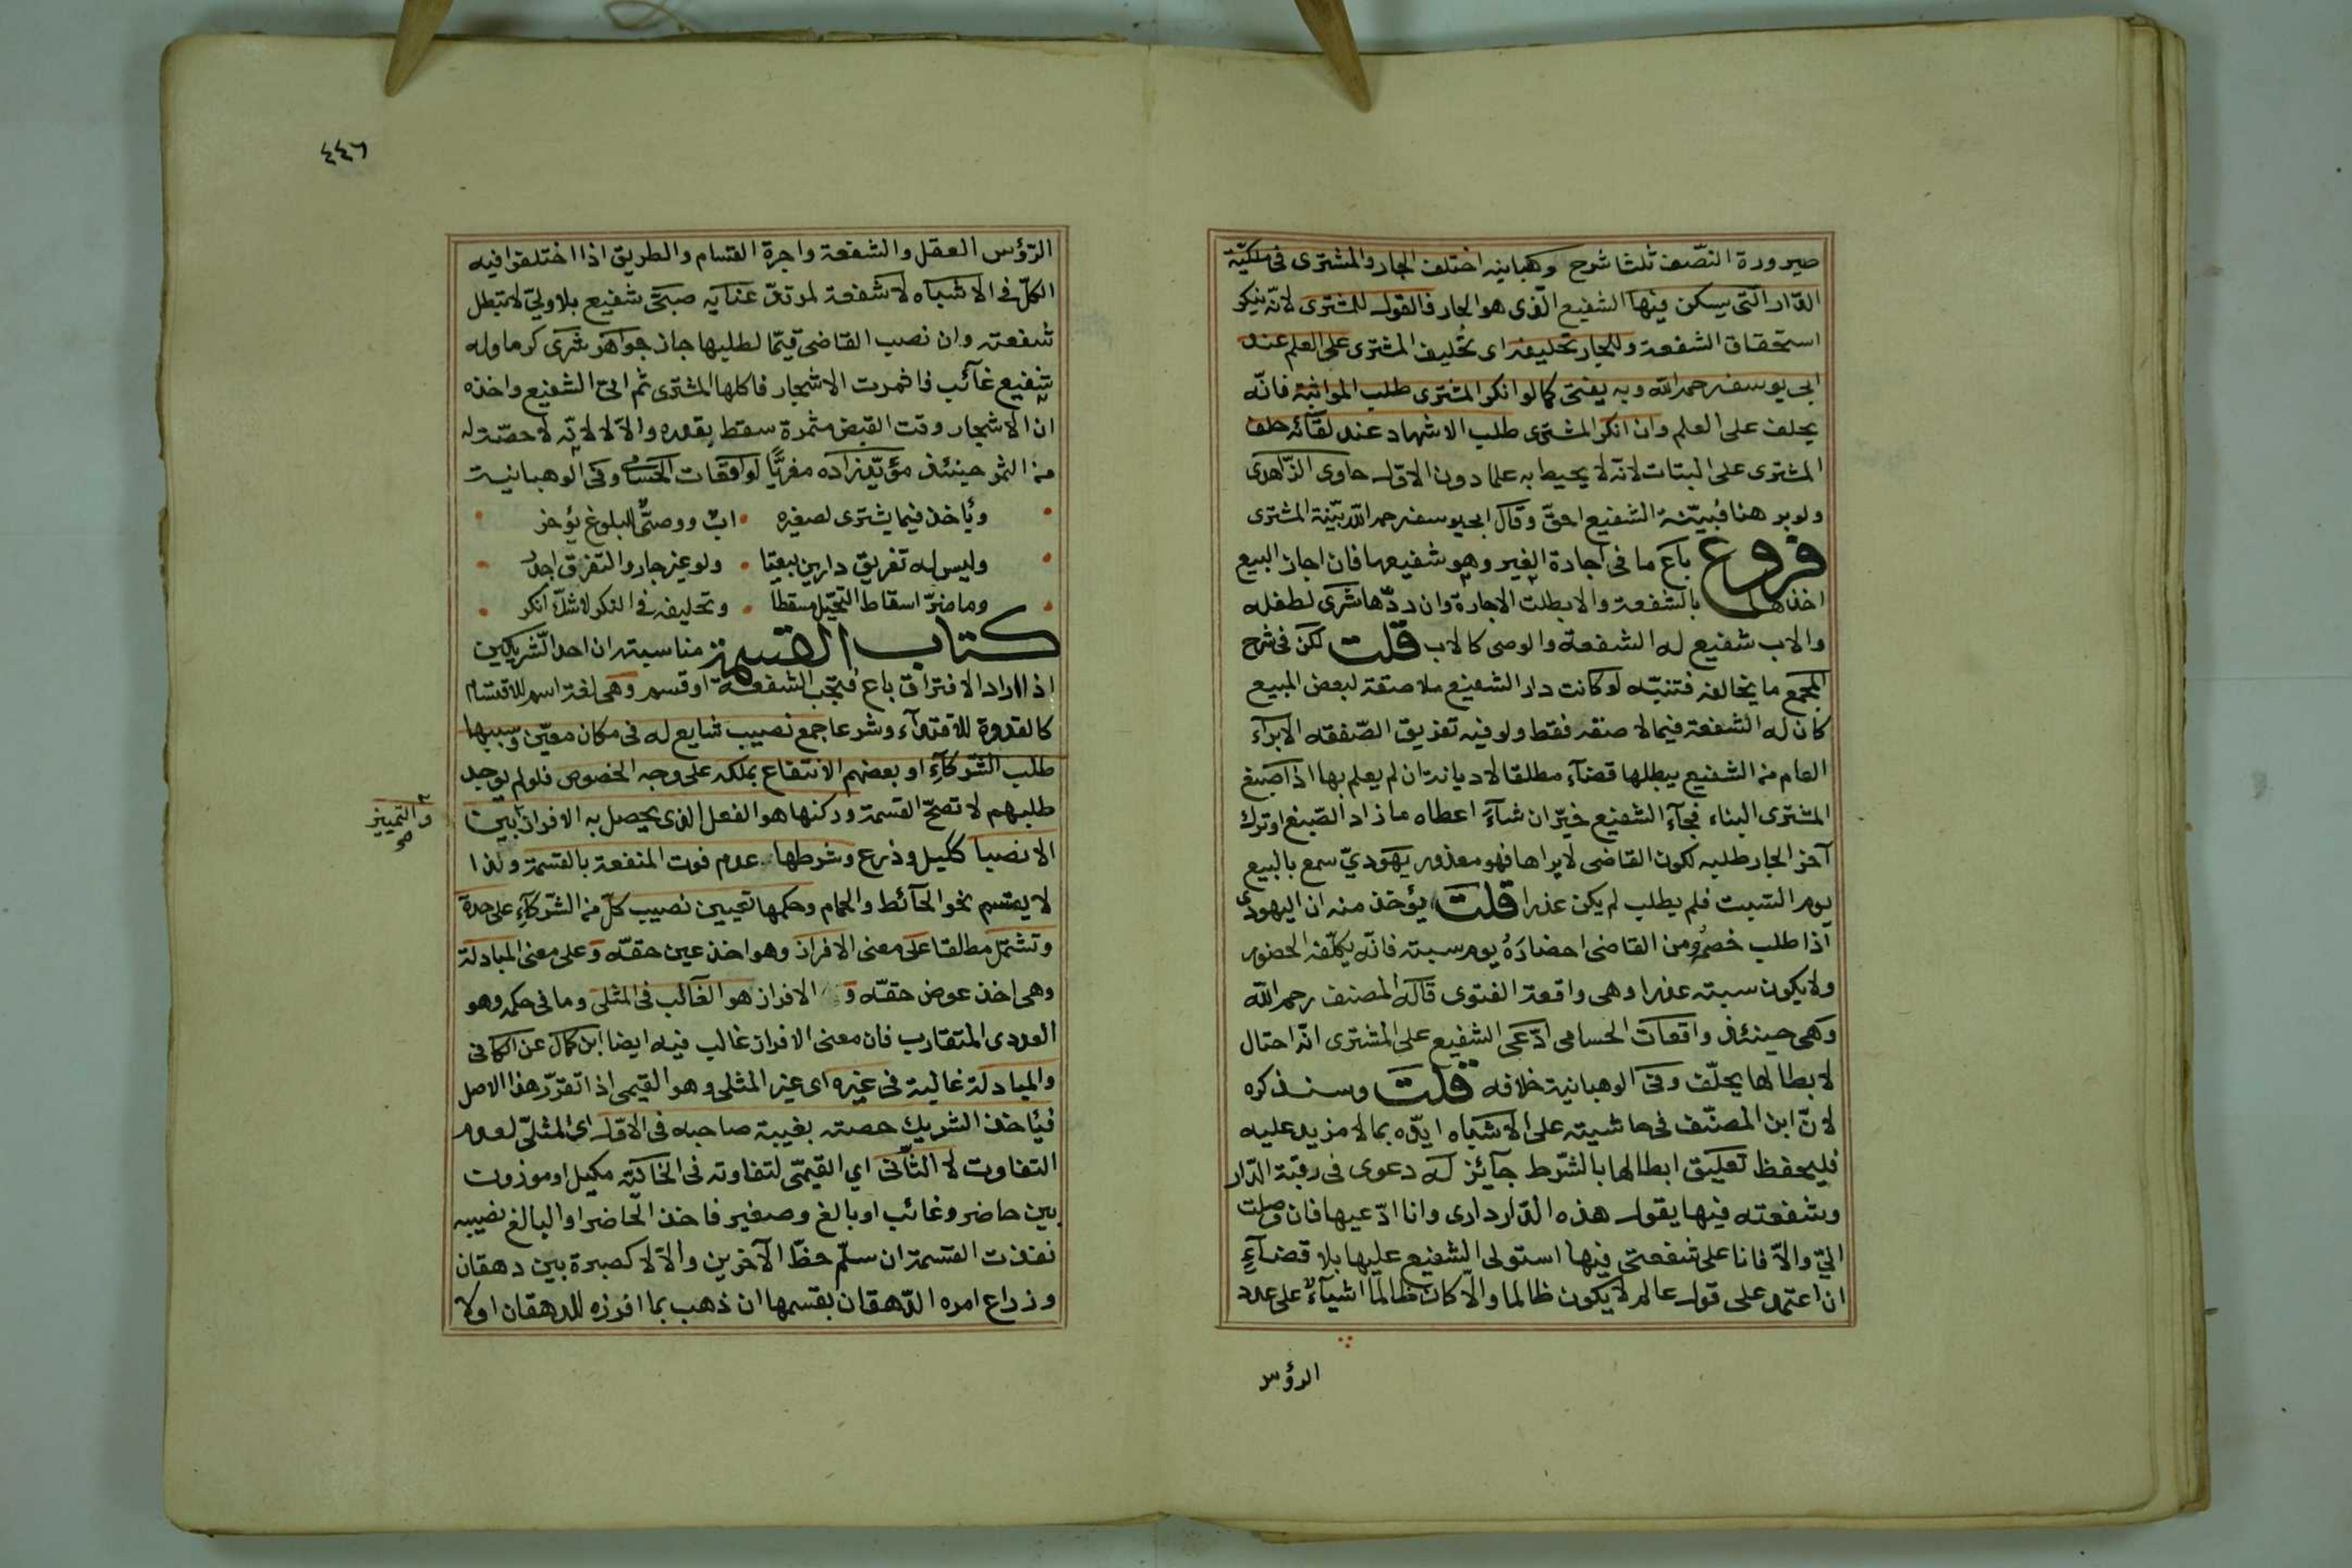 صيرورة النّصف ثلثا شرح وهبانيه اختلف الجار والمشترى فى ملكيّة
الدّار الّتى يسكن فيها الشفيع الّذى هو الجار فالقول للمشترى لانّه ينكر
استحقاق الشفعة وللجار تحليفه اى تحليف المشترى على العلم عند
ابى يوسف رحمه الله وبه يفتى كما لو انكر المشترى طلب المواثبة فانّه
يحلف على العلم وان انكر المشترى طلب الاشهاد عند لقائه حلف
المشترى على البتات لانّه لا يحيط به علما دون الاوّل حاوى الزّاهدى
ولو برهنا فبيّنة الشفيع احقّ وقال ابى يوسف رحمه الله بيّنة المشترى
فروع باع ما فى اجارة الغير وهو شفيعها فان اجاز البيع
اخذها بالشفعة والا بطلت الاجارة وان ردّها شرى لطفله
والاب شفيع له الشفعة والوصى كالاب قلت لكن فى شرح
المجمع ما يخالفه فتنبّه لو كانت دار الشفيع ملاصقة لبعض المبيع
كان له الشفعة فيما لاصقه فقط ولو فيه تفريق الصّفقه الابرآء
العام من الشفيع يبطلها قضآء مطلقا لا ديانة ان لم يعلم بها اذا صبغ
المشترى البناء فجآء الشفيع خيّر ان شآء اعطاه ما زاد الصّبغ او ترك
آخر الجار طلبه لكون القاضى لا يراها فهو معذور يهودىّ سمع بالبيع
يوم السّبت فلم يطلب لم يكن عذرا قلت يؤخذ منه ان اليهودى
اذا طلب خصمه من القاضى احضاره يوم سبته فانّه يكلّفه الحضور
ولا يكون سبته عذرا وهى واقعة الفتوى قاله المصنف رحمه الله
وهى حينئذ واقعات الحسامى ادّعى الشفيع على المشترى انّه احتال
لابطالها يحلّف وفى الوهبانية خلافه قلت وسنذكره
لانّ ابن المصنّف فى حاشيته على الاشباه ايّده بما لا مزيد عليه
فليحفظ تعليق ابطالها بالشّرط جآئز له دعوى فى رقبة الدّار
وشفعته فيها يقول هذه الدّار دارى وانا ادّعيها فان وصلت
الىّ والّا فانا على شفعتى فيها استولى الشفيع عليها بلا قضآءٍ
ان اعتمد على قول عالم لا يكون ظالما والّا كان ظالما اشيآءٌ على عدد
الرؤس
٤٤٦
الرّؤس العقل والشفعة واجرة القسام والطريق اذا اختلفوا فيه
الكلّ فى الاشباه لا شفعة لمرتدّ عنايه صبىّ شفيع بلا ولىّ لا تبطل
شفعته وان نصب القاضى قيّما لطلبها جاز جواهر شرى كرما وله
شفيع غآئب فاثمرت الاشجار فاكلها المشترى ثم اتى الشفيع واخذه
ان الاشجار وقت القبض مثمرة سقط بقدره والّا لا لانّه لا حصّة له
من الثمر حينئذ مؤيّد زاده معزيًّا لواقعات الحسامى وفى الوهبانية
ويأخذ فيما يشترى لصغيره ابٌ ووصىٌّ للبلوغ يؤخر
وليس له تفريق دارين بيعتا ولو غير جار والتفرّق اجدر
وما ضرّ اسقاط التحيّل مسقطا وتحليفه فى النكر لا شكّ انكر
كتاب القسمة مناسبته ان احد الشّريكين
اذا اراد الافتراق باع فتجب الشفعة او قسم وهى لغة اسم للاقتسام
كالقدوة للاقتدآء وشرعا جمع نصيب شايع له فى مكان معيّن وسببها
طلب الشّركآءِ او بعضهم الانتفاع بملكه على وجه الخصوص فلو لم يوجد
طلبهم لا تصحّ القسمة وركنها هو الفعل الذى يحصل به الافراز بين
والتمييز صح
الانصبا ككيل وذرع وشرطها عدم فوت المنفعة بالقسمة ولذا
لا يقسم نحو الحآئط والحمام وحكمها تعيين نصيب كلّ من الشّركآءِ على حدة
وتشتمل مطلقا على معنى الافراز وهو اخذ عين حقّه وعلى معنى المبادلة
وهى اخذ عوض حقّه و الافراز هو الغالب فى المثلى وما فى حكمه وهو
العددى المتقارب فان معنى الافراز غالب فيه ايضا ابن كمال عن الكافى
والمبادلة غالبة فى غيره اى غير المثلى وهو القيمى اذا تقرّر هذا الاصل
فيأخذ الشريك حصته بغيبة صاحبه فى الاوّل اى المثلىّ لعدم
التفاوت لا الثّانى اي القيمىّ لتفاوته فى الخانيّه مكيل او موزون
بين حاضر وغائب او بالغ وصغير فاخذ الحاضر او البالغ نصيبه
نفذت القسمة ان سلّم حظّ الآخرين والّا لا كصبرة بين دهقان
وزراع امره الدّهقان بقسمها ان ذهب بما افرزه للدهقان اولا